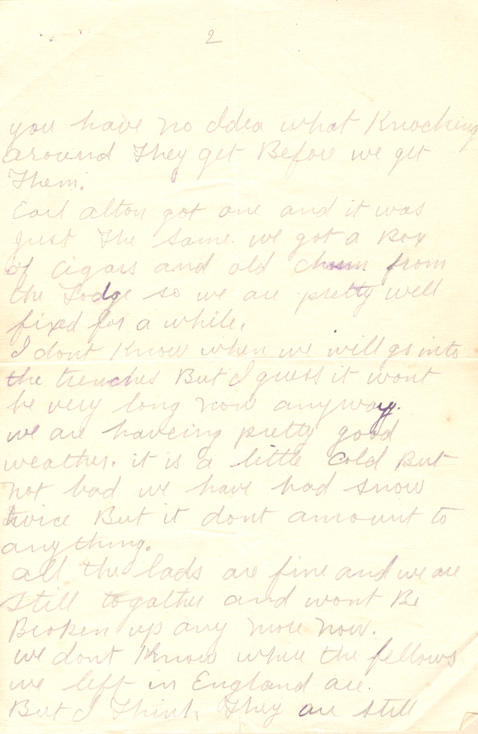 2
you have no Idea what Knocking
around They get Before we get
Them.
Earl alton got one and it was
just The same. we got a Box
of Cigars and old chum from
the Lodge so we are pretty well
fixed for a while.
I dont Know when we will go into
the trenches But I guess it wont
be very long now anyway.
we are haveing pretty good
weather. it is a little Cold But
not bad we have had snow
twice But it dont amount to
anything.
all the lads are fine and we are
still togather and wont Be
Broken up any more now.
we dont Know where the fellows
we left in England are.
But I Think They are still